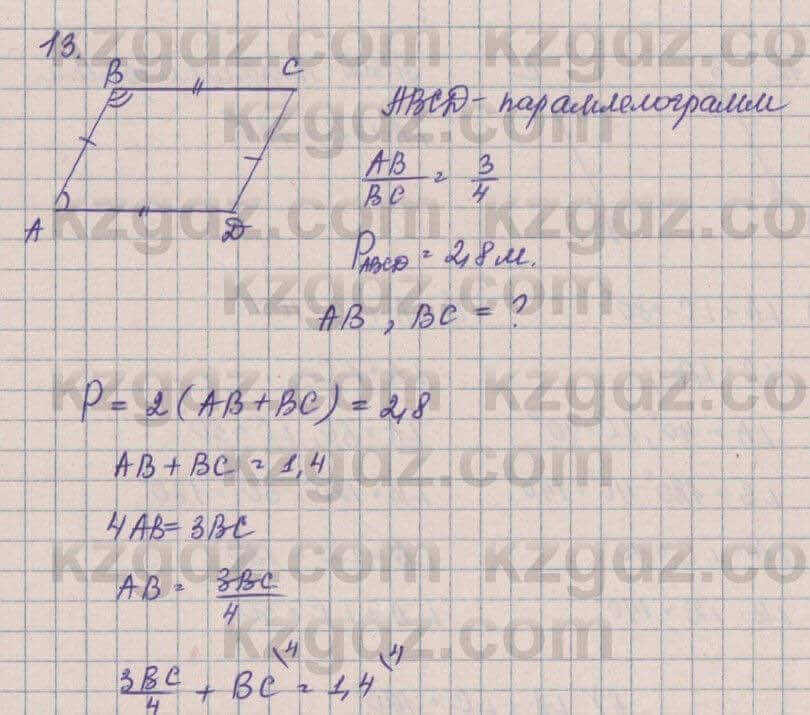 13.
B C
ABCD - параллелограмм
AB/BC = 3/4
A D
P_ABCD = 2,8 м.
AB, BC = ?
P = 2(AB + BC) = 2,8
AB + BC = 1,4
4AB = 3BC
AB = 3BC/4
3BC/4 + BC\4 = 1,4\4
kzgdz.com kzgdz.co
kzgdz.com
kzgdz.com kzgdz.co
kzgdz.com
kzgdz.com kzgdz.co
kzgdz.com
kzgdz.com kzgdz.co
kzgdz.com